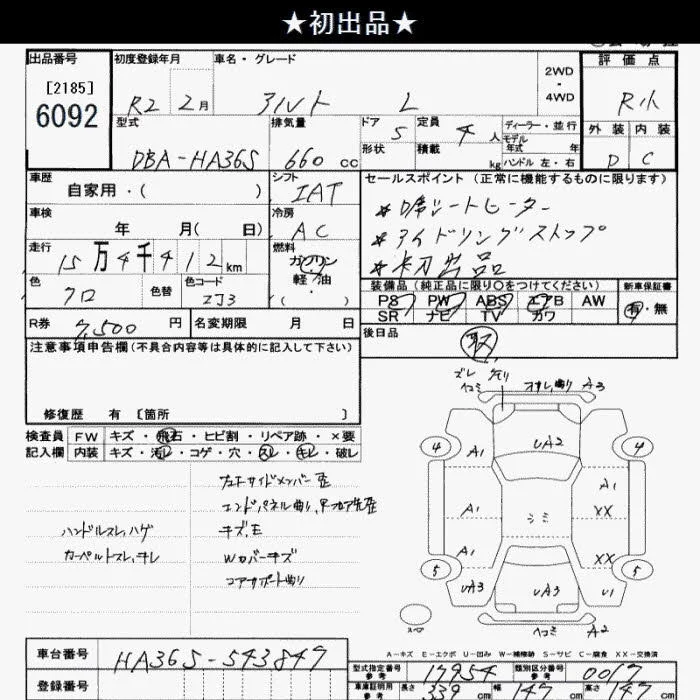 ★初出品★
出品番号 初度登録年月 車名・グレード 2WD・4WD 評価点
[2185]
6092
R2 2月 アルト L
外装 内装
D C
型式 排気量 ドア 定員 ディーラー・並行
DBA-HA36S 660cc 5 4人 モデル年式 年
形状 積載 kg ハンドル 左・右
車歴 シフト セールスポイント (正常に機能するものに限ります)
自家用・( ) IAT
*D席シートヒーター
車検 冷房
年 月( 日) AC
*アイドリングストップ
走行 燃料
15万4千412km ガソリン
*初出品
軽油
色 色替 色コード
クロ ZJ3
装備品 (純正品に限り○をつけてください) 新車保証書
PS PW ABS エアB AW 有・無
SR ナビ TV カワ
R券 7,500円 名変期限 月 日
後日品
取
注意事項申告欄(不具合内容等は具体的に記入して下さい)
修復歴 有 〔箇所 〕
検査員 FW キズ・飛石・ヒビ割・リペア跡・×要
記入欄 内装 キズ・汚レ・コゲ・穴・スレ・キレ・破レ
エンドパネル曲り
ハンドルスレ,ハゲ
キズ,E
カーペルトスレ,キレ
Wカバーキズ
コアサポート曲り
ズレ
ヘコミ A3
UA2
4 A1 4
A1 A1
シミ XX
A1 XX
5 5
UA3 UA3 U1
ヘコミ A2
スペア
A-キズ E-エクボ U-凹み W-補修跡 S-サビ C-腐食 XX-交換済
車台番号 HA36S-543847
登録番号
型式指定番号 参考 17954 類別区分番号 参考 0017
車庫証明用 参考 長さ 339cm 幅 147cm 高さ 147cm